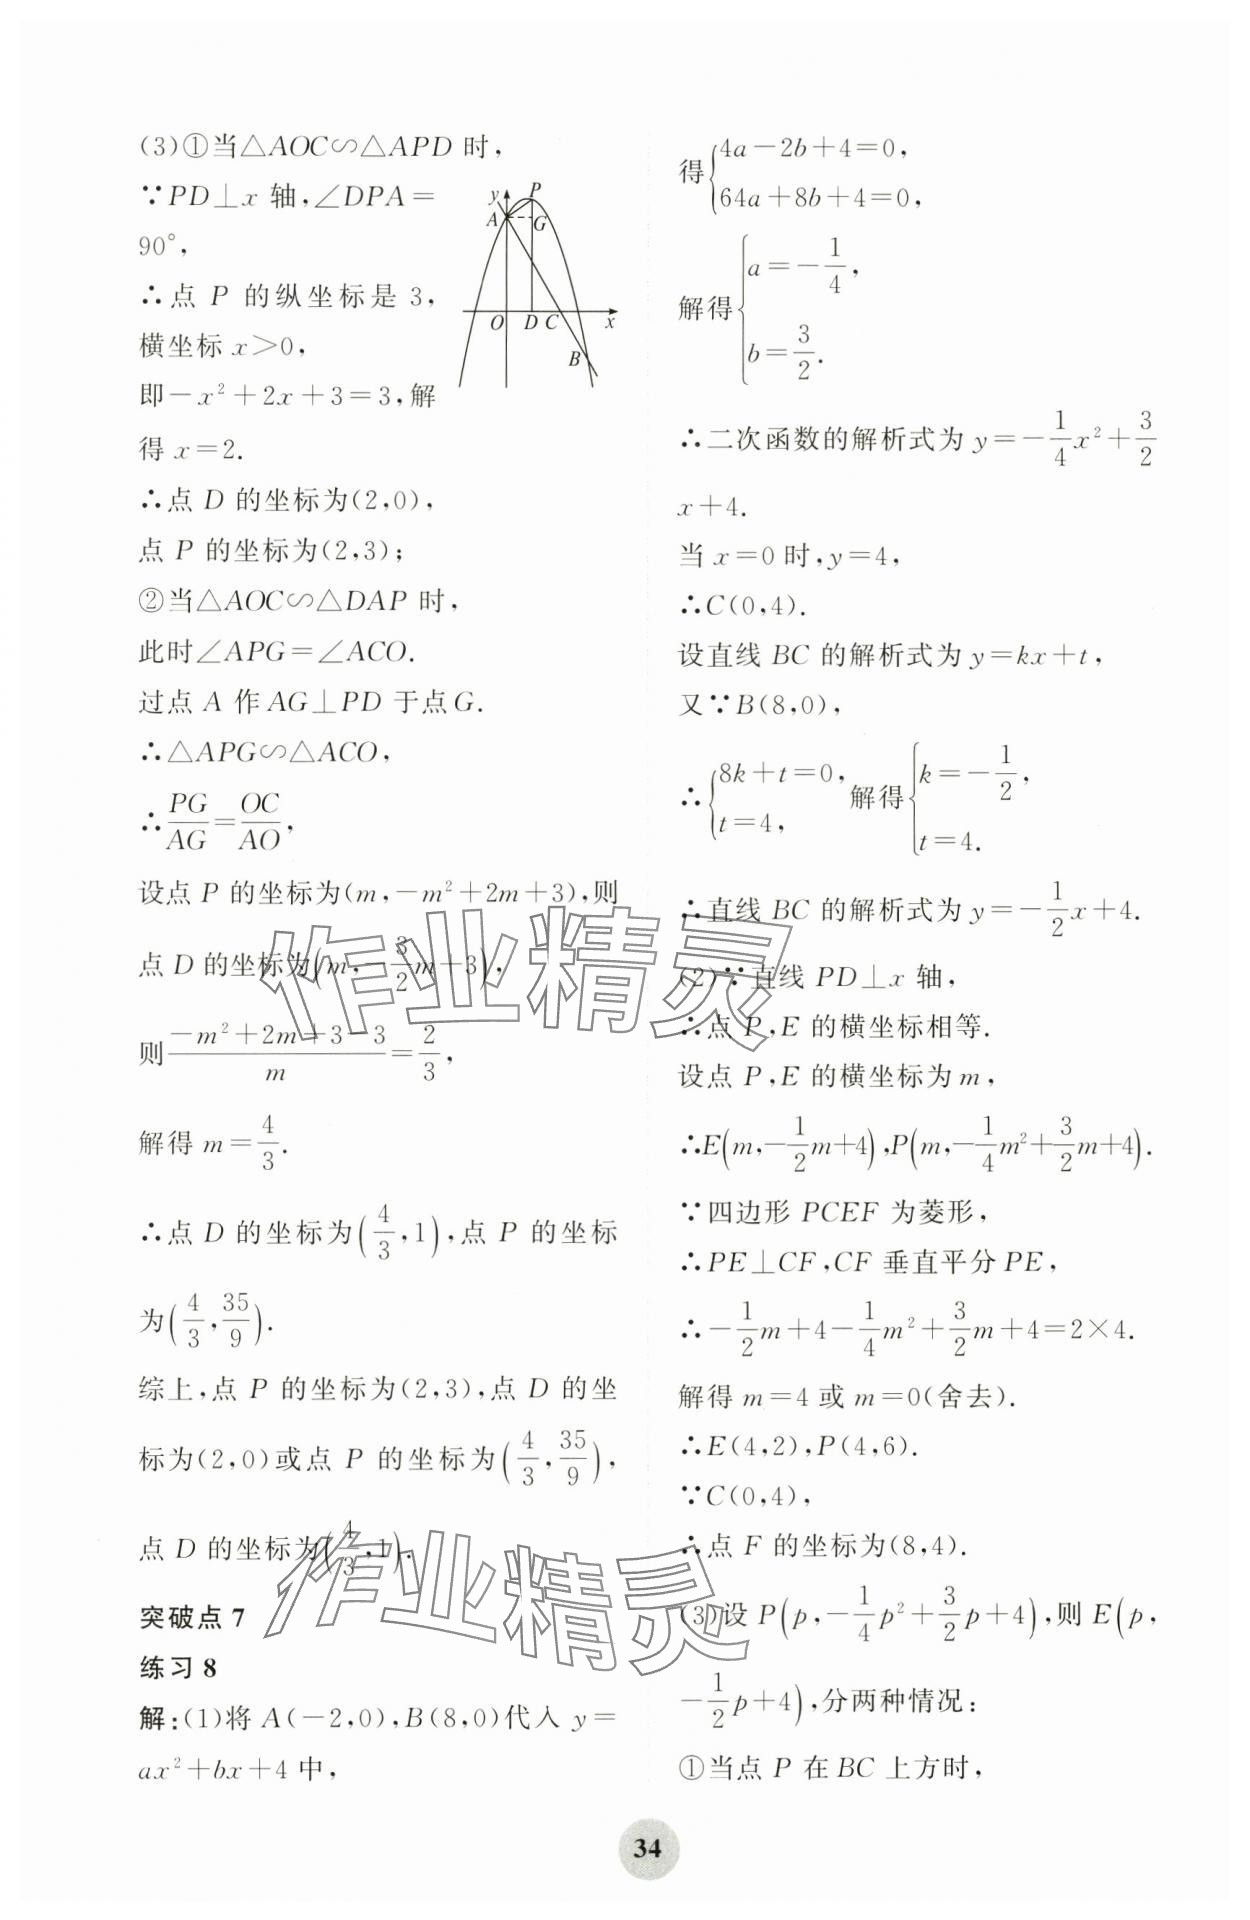 (3)①当△AOC∽△APD 时,
∵PD⊥x 轴,∠DPA=
90°,
∴点 P 的纵坐标是 3,
横坐标 x>0,
即-x²+2x+3=3,解
得 x=2.
y
P
A
G
O
D
C
x
B
∴点 D 的坐标为(2,0),
点 P 的坐标为(2,3);
②当△AOC∽△DAP 时,
此时∠APG=∠ACO.
过点 A 作 AG⊥PD 于点G.
∴△APG∽△ACO,
∴PG/AG=OC/AO,
设点 P 的坐标为(m,-m²+2m+3),则
点 D 的坐标为(m,-3/2m+3),
则(-m²+2m+3-3)/m=2/3,
解得 m=4/3.
∴点 D 的坐标为(4/3,1),点 P 的坐标
为(4/3,35/9).
综上,点 P 的坐标为(2,3),点 D 的坐
标为(2,0)或点 P 的坐标为(4/3,35/9),
点 D 的坐标为(4/3,1).
突破点 7
练习 8
解:(1)将 A(-2,0),B(8,0)代入 y=
ax²+bx+4 中,
得{4a-2b+4=0,
64a+8b+4=0,
解得{a=-1/4,
b=3/2.
∴二次函数的解析式为 y=-1/4x²+3/2
x+4.
当 x=0 时,y=4,
∴C(0,4).
设直线 BC 的解析式为 y=kx+t,
又∵B(8,0),
∴{8k+t=0, t=4, 解得{k=-1/2, t=4.
∴直线 BC 的解析式为 y=-1/2x+4.
(2)∵直线 PD⊥x 轴,
∴点 P,E 的横坐标相等.
设点 P,E 的横坐标为 m,
∴E(m,-1/2m+4),P(m,-1/4m²+3/2m+4).
∵四边形 PCEF 为菱形,
∴PE⊥CF,CF 垂直平分 PE,
∴-1/2m+4-1/4m²+3/2m+4=2×4.
解得 m=4 或 m=0(舍去).
∴E(4,2),P(4,6).
∵C(0,4),
∴点 F 的坐标为(8,4).
(3)设 P(p,-1/4p²+3/2p+4),则 E(p,
-1/2p+4),分两种情况:
①当点 P 在 BC 上方时,
作业精灵
作业精灵
34